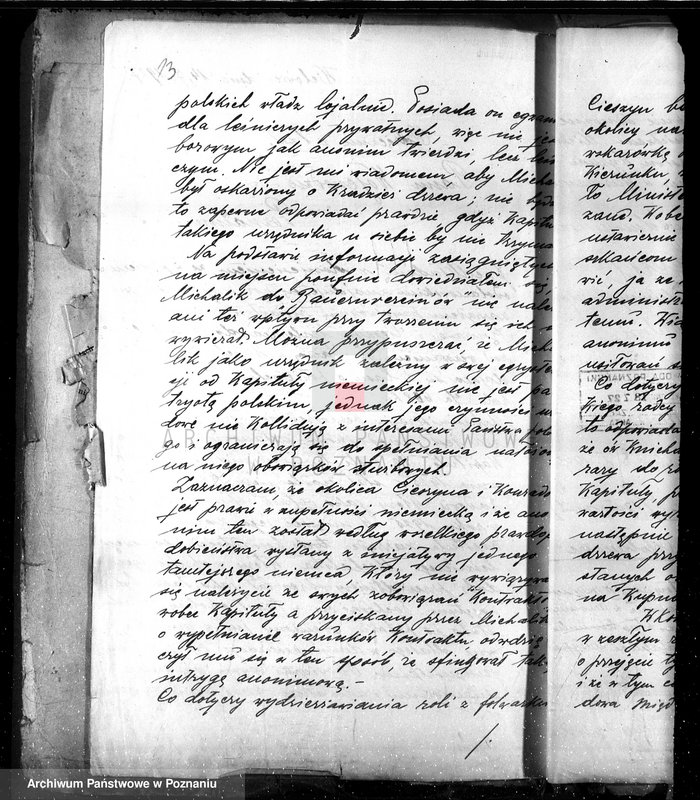 13
polskich władz lojalnie. Posiada on egzam
dla leśniczych prywatnych, więc nie jes
borowym jak anonim twierdzi, lecz leśn
czym. Nie jest mi wiadomem aby Micha
był oskarżony o kradzież drzewa; nie
to zapewne odpowiadać prawdzie gdyż Kapitu
takiego urzędnika u siebie by nie trzyma
Na podstawie informacji zasiągniętych
na miejscu poufnie dowiedziałem się
Michalik do "Bauernvereinów" nie nale
ani też wpływu przy tworzeniu się ich
wywierał. Można przypuszczać że Micha
lik jako urzędnik zależny w swej egzyste
cji od Kapituły niemieckiej nie jest pa
tryotą polskim, jednak jego czynności
dowe nie kollidują z interesami Państwa pols
go i ograniczają się do spełniania
na niego obowiązków służbowych.
Zaznaczam, że okolica Cieszyna i Konrado
jest prawie w zupełności niemiecką i że ano
nim ten został według wszelkiego prawdop
dobieństwa wysłany z inicjatywy jednego
tamtejszego niemca, który nie wywiązywa
się należycie ze swych zobowiązań Kontrakto
wobec Kapituły a przyciskany przez Michalik
o wypełnianie warunków Kontraktu, odwdzię
czył mu się w ten sposób, że sfingował tak
intrygę anonimową.-
Co dotyczy wydzierżawiania roli z folwarku
/.
Cieszyn
okolicy na
Kierunku
To Minist
żand. Kobe
ustawicznie
wić, ja że
administr
temu.
anonimu
usiłowań
Co dotyczy
Kiego radcy
to odpowiada
że ów
razy do
Kapituły, p
wartości
następnie
drzewa przy
stanych
na Kupn
w zeszłym
o przyjęcie
i że w tym
dowa
ARCHIWUM PAŃSTWOWE
W POZNANIU
Archiwum Państwowe w Poznaniu